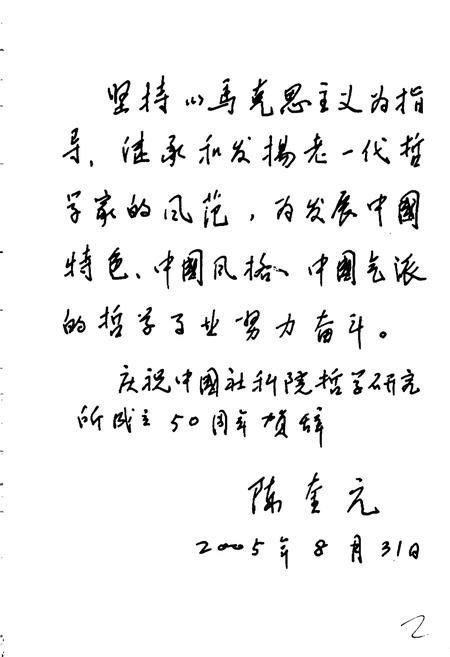 坚持以馬克思主义为指
导，继承和发揚老一代哲
学家的风范，为发展中國
特色、中國风格、中國气派
的哲学事业努力奋斗。
庆祝中國社科院哲学研究
所成立50周年贺辞
陈奎元
2005年8月31日
2